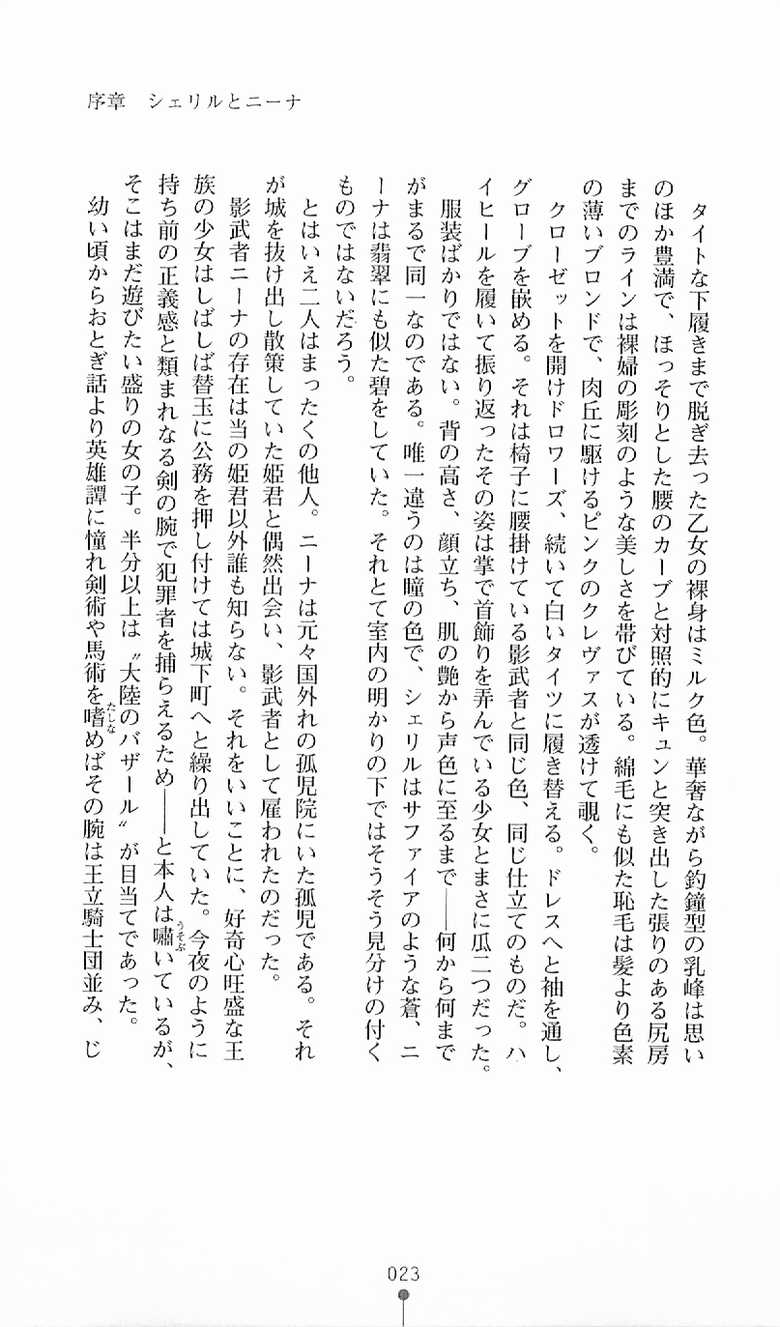 序章　シェリルとニーナ
タイトな下履きまで脱ぎ去った乙女の裸身はミルク色。華奢ながら釣鐘型の乳峰は思い
のほか豊満で、ほっそりとした腰のカーブと対照的にキュンと突き出した張りのある尻房
までのラインは裸婦の彫刻のような美しさを帯びている。綿毛にも似た恥毛は髪より色素
の薄いブロンドで、肉丘に駆けるピンクのクレヴァスが透けて覗く。
クローゼットを開けドロワーズ、続いて白いタイツに履き替える。ドレスへと袖を通し、
グローブを嵌める。それは椅子に腰掛けている影武者と同じ色、同じ仕立てのものだ。ハ
イヒールを履いて振り返ったその姿は掌で首飾りを弄んでいる少女とまさに瓜二つだった。
服装ばかりではない。背の高さ、顔立ち、肌の艶から声色に至るまで――何から何まで
がまるで同一なのである。唯一違うのは瞳の色で、シェリルはサファイアのような蒼、ニ
ーナは翡翠にも似た碧をしていた。それとて室内の明かりの下ではそうそう見分けの付く
ものではないだろう。
とはいえ二人はまったくの他人。ニーナは元々国外れの孤児院にいた孤児である。それ
が城を抜け出し散策していた姫君と偶然出会い、影武者として雇われたのだった。
影武者ニーナの存在は当の姫君以外誰も知らない。それをいいことに、好奇心旺盛な王
族の少女はしばしば替玉に公務を押し付けては城下町へと繰り出していた。今夜のように
持ち前の正義感と類まれなる剣の腕で犯罪者を捕らえるため――と本人は嘯いているが、
そこはまだ遊びたい盛りの女の子。半分以上は〝大陸のバザール〟が目当てであった。
幼い頃からおとぎ話より英雄譚に憧れ剣術や馬術を嗜めばその腕は王立騎士団並み、じ
うそぶ
たしな
023